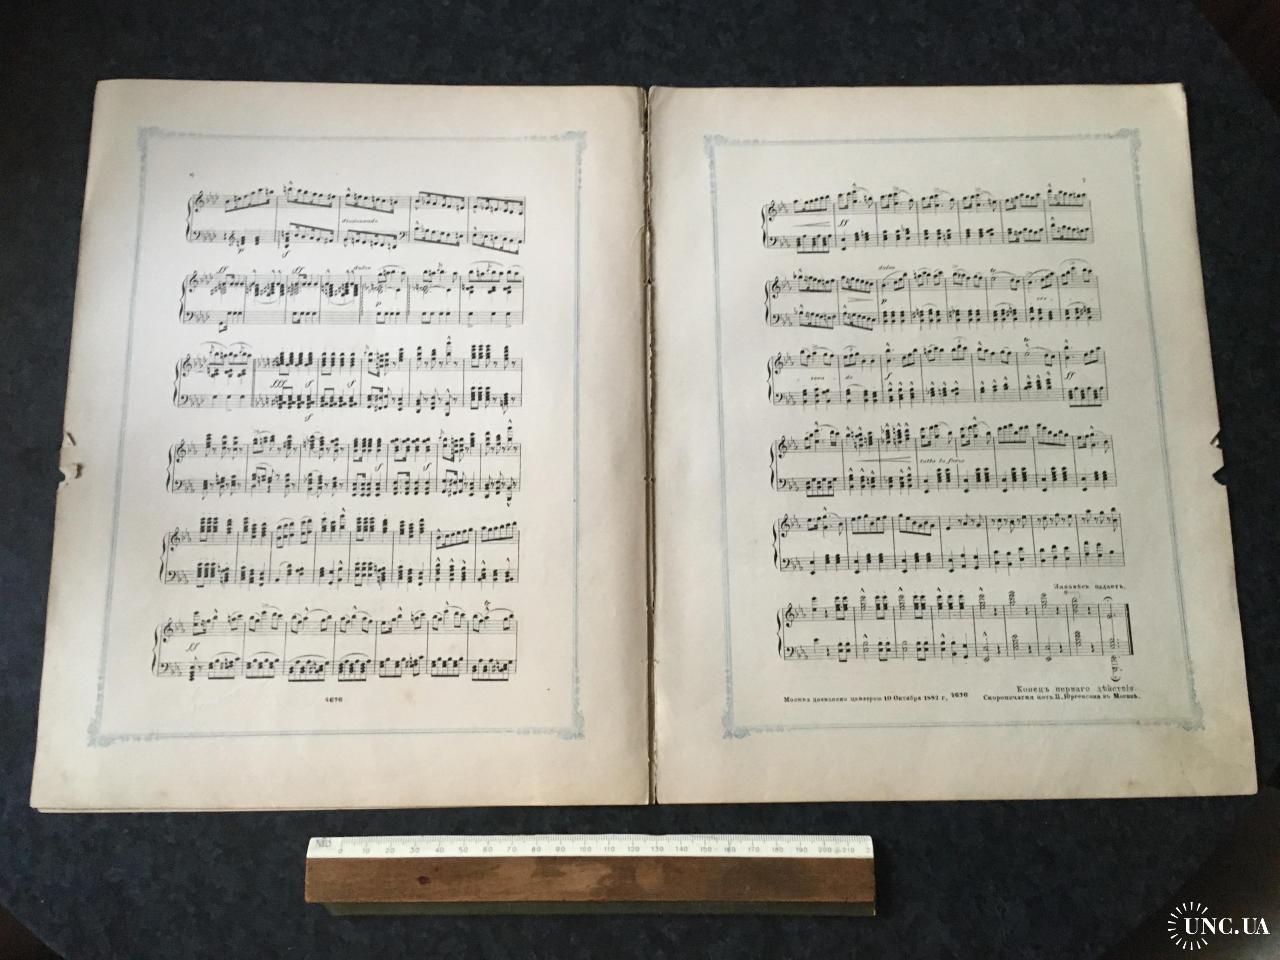 6
diminuendo
p
sf
ff
ff
dolce
p
fff
sf
sf
sf
sf
ff
4676
7
ff
dolce
p
cres
cen
do
f
ff
tutta la forza
Занавѣсъ падаетъ.
Конецъ перваго дѣйствія.
Москва дозволено цензурою 10 Октября 1882 г. 4676 Скоропечатня нотъ П. Юргенсона въ Москвѣ.
0 10 20 30 40 50 60 70 80 90 100 110 120 130 140 150 160 170 180 190 200 210
UNC.UA